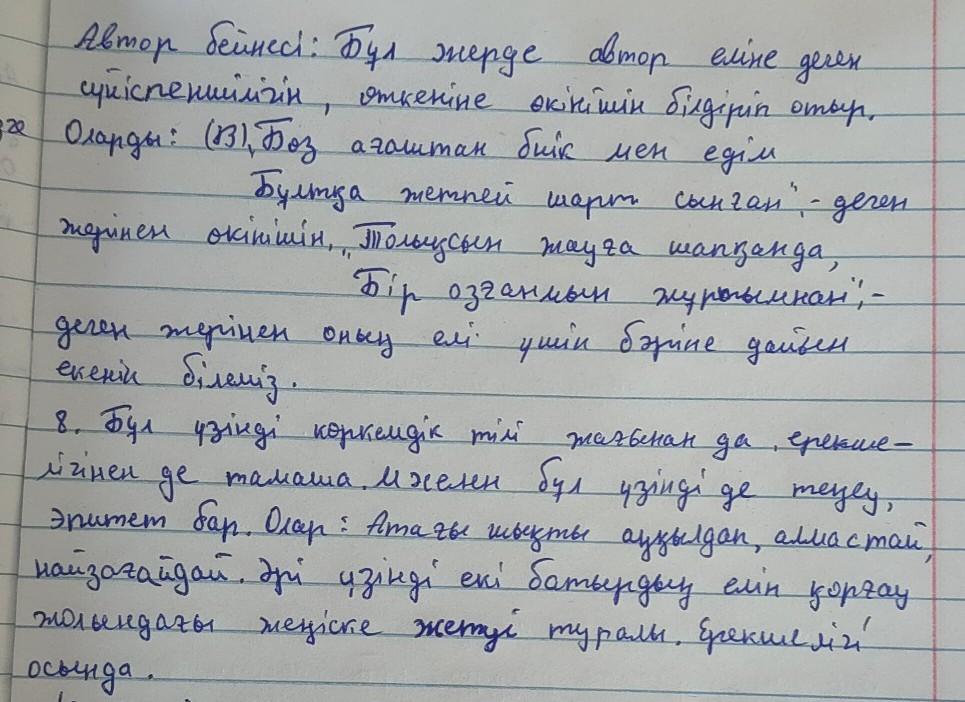 Автор бейнесі: Бұл жерде автор еліне деген
сүйіспеншілігін, өткеніне өкінішін білдіріп отыр.
Оларды: (ІЗ) „Боз ағаштан биік мен едім
Бұлтқа жетпей шарт сынған", - деген
жерінен өкінішін, „Толықсын жауға шапқанда,
Бір озғанмын жұрағымнан", -
деген жерінен оның елі үшін бәріне дайын
екенін білеміз.
8. Бұл үзінді көркемдік тілі жағынан да, ерекше-
лігінен де тамаша. Мәселен бұл үзінді де теңеу,
эпитет бар. Олар: Атағы шықты ауқылдап, алмастай,
найзағайдай. Әрі үзінді екі батырдың елін қорғау
жолындағы жеңіске жетуі туралы. Ерекшелігі
осында.